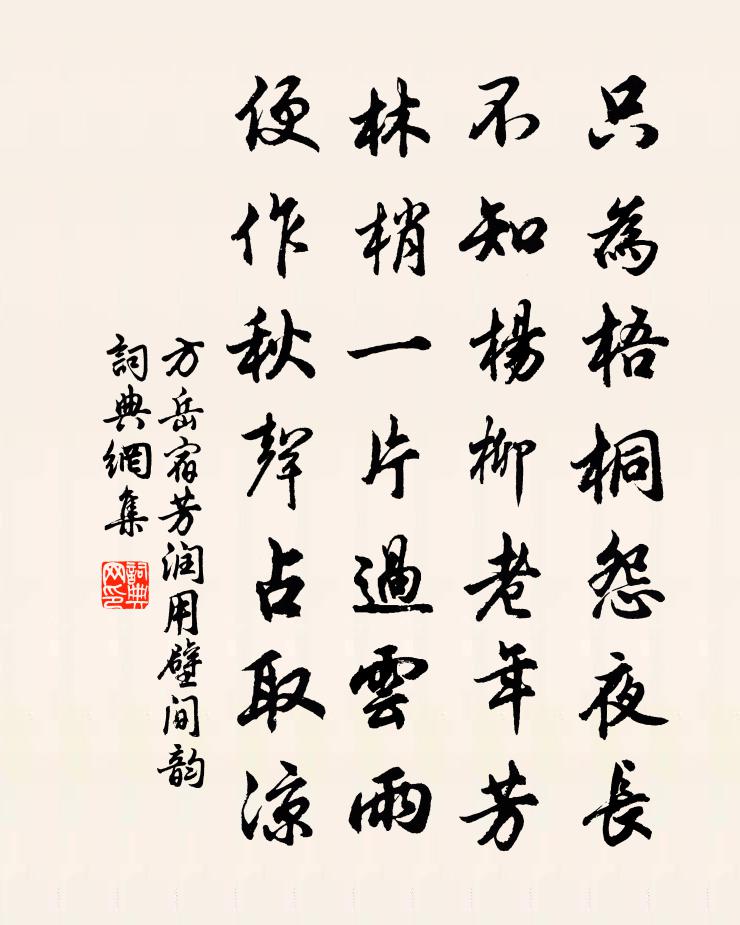 只為梧桐怨夜長
不知楊柳老年芳
林梢一片過雲雨
便作秋聲占取涼
方岳宿芳润用壁间韵
詞典網集
詞典网印